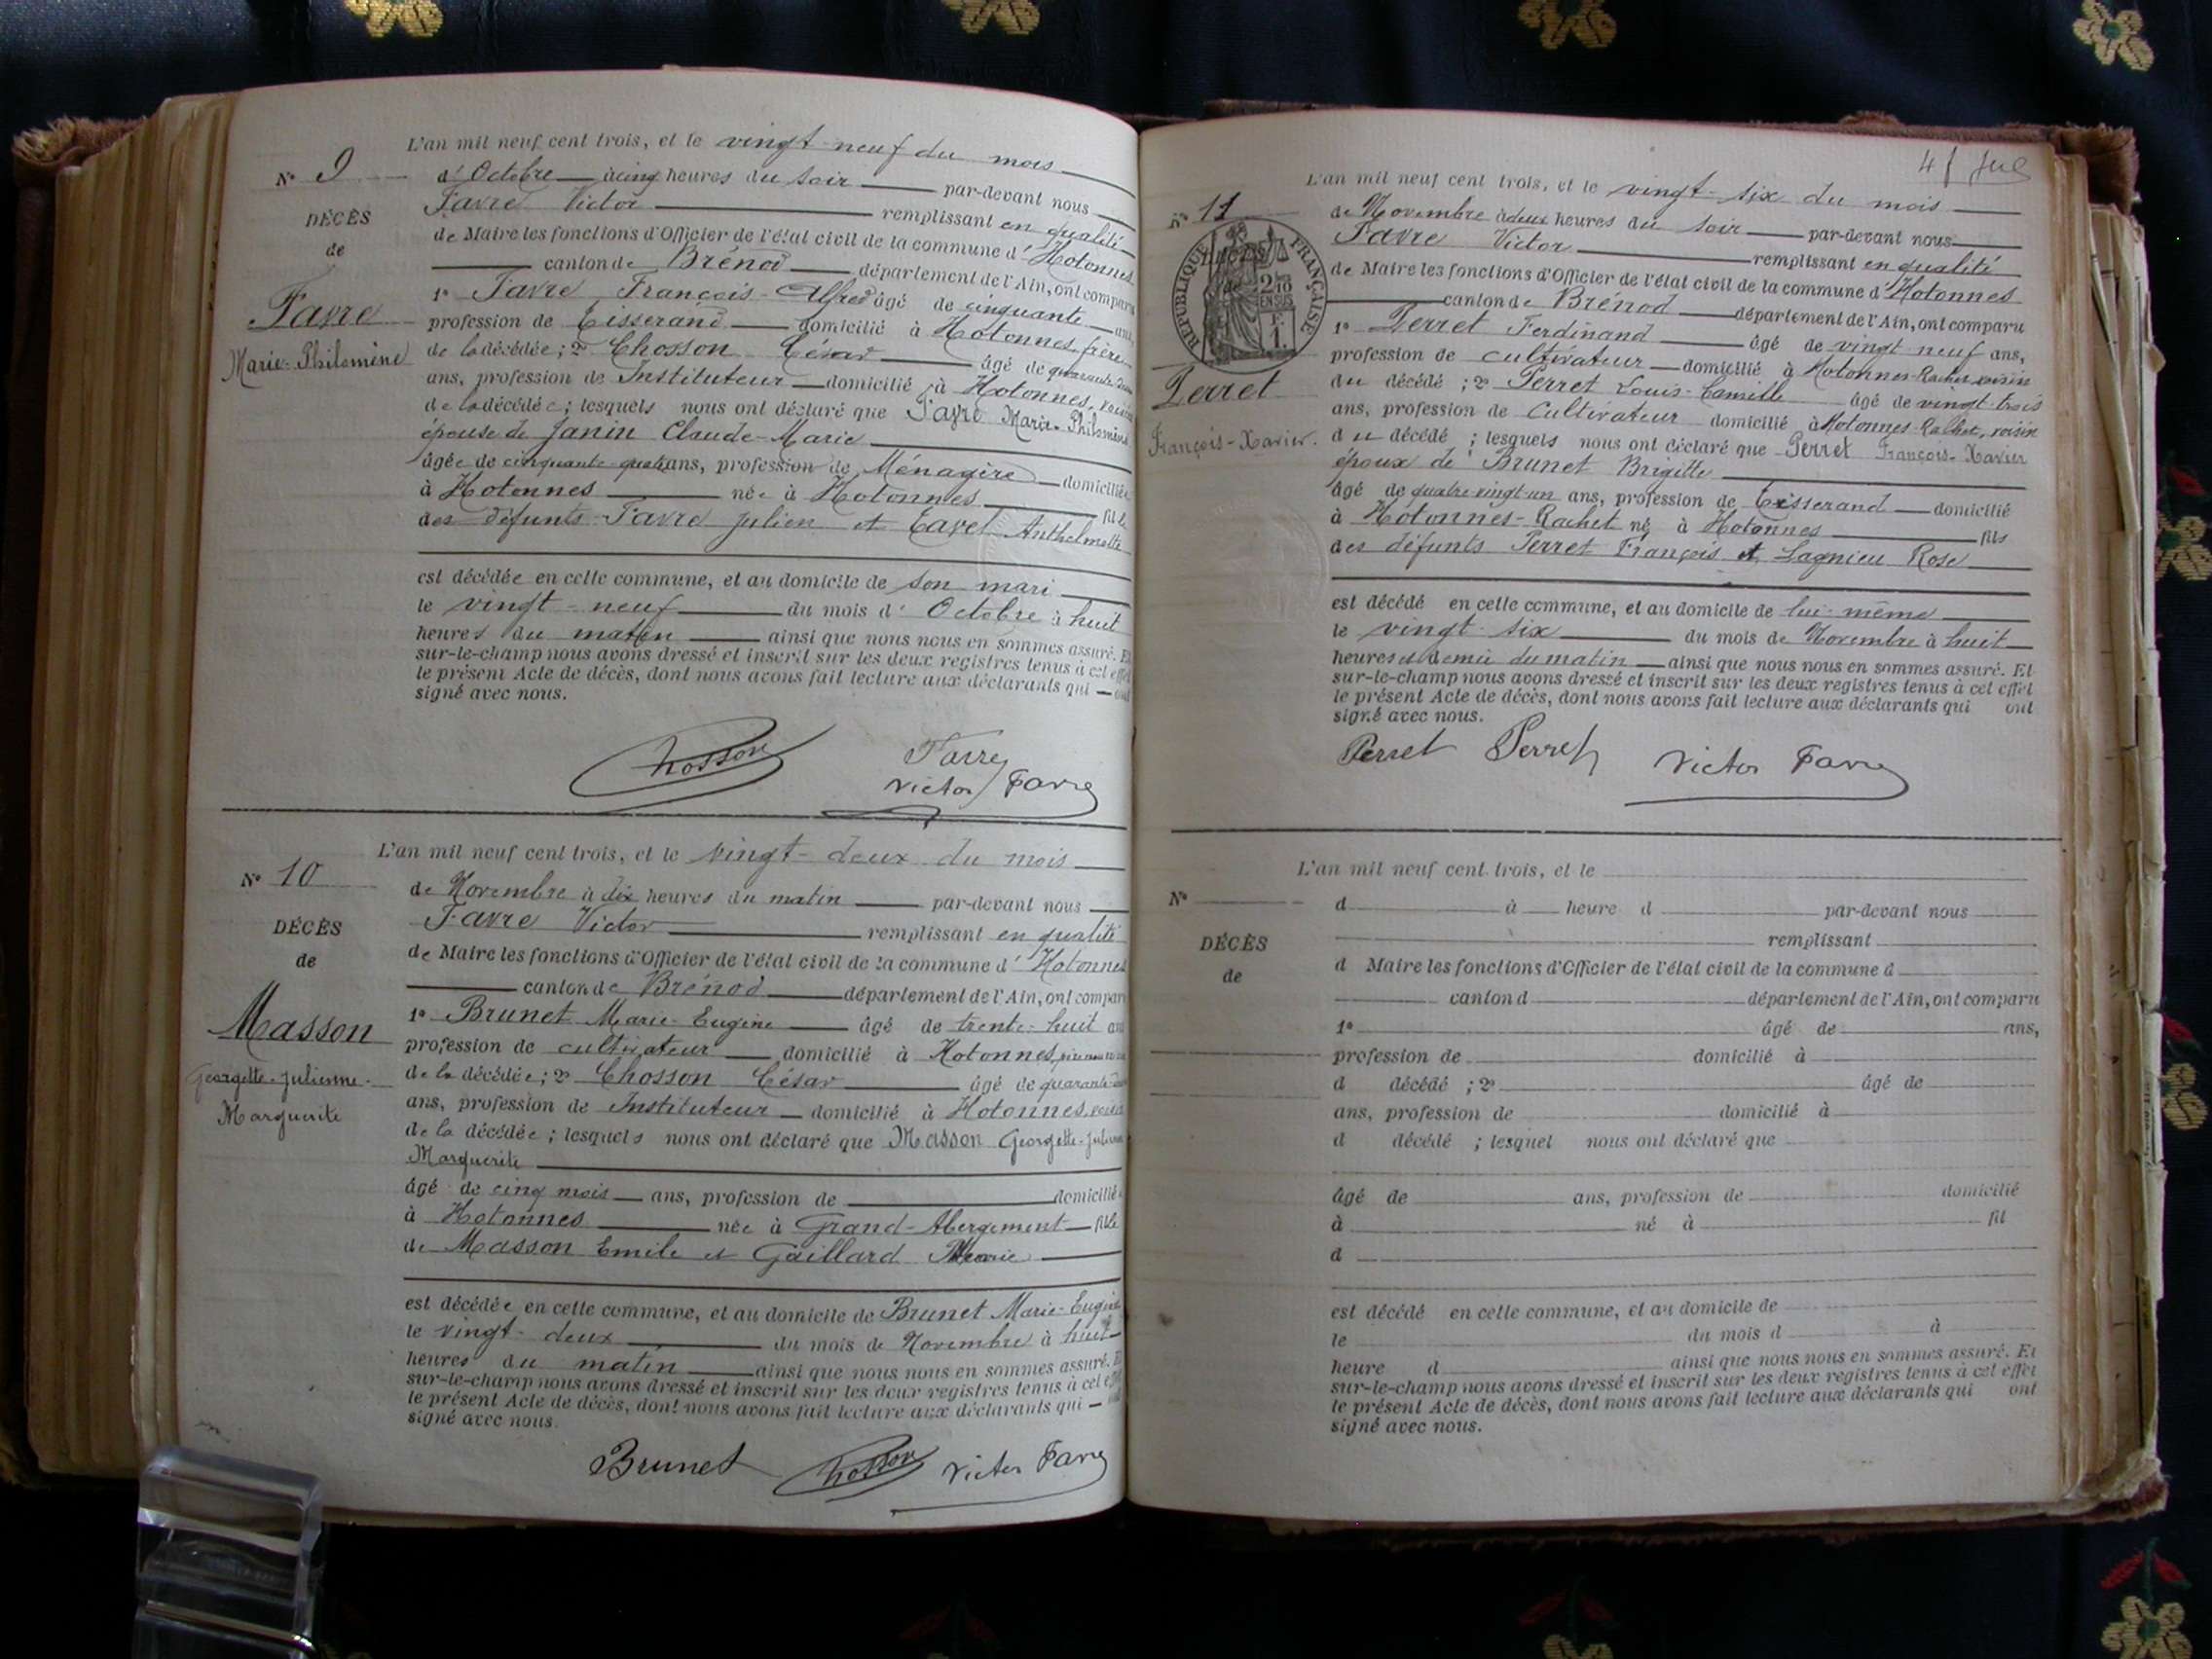 N° 9
DÉCÈS
de
Favre
Marie-Philomène
L'an mil neuf cent trois, et le vingt-neuf du mois
d'Octobre à cinq heures du soir par-devant nous
Favre Victor remplissant en qualité
de Maire les fonctions d'Officier de l'état civil de la commune d'Hotonnes
canton de Brénod département de l'Ain, ont comparu
1° Favre François-Alfred âgé de cinquante ans,
profession de Tisserand domicilié à Hotonnes, frère
de la décédée ; 2° Chosson César âgé de
ans, profession de Instituteur domicilié à Hotonnes, voisin
de la décédée ; lesquels nous ont déclaré que Favre Marie-Philomène
épouse de Janin Claude-Marie
âgée de cinquante-quatre ans, profession de Ménagère domiciliée
à Hotonnes née à Hotonnes fille
des défunts Favre Julien et Tavel Anthelmette
est décédée en cette commune, et au domicile de son mari
le vingt-neuf du mois d'Octobre à huit
heures du matin ainsi que nous nous en sommes assuré. Et
sur-le-champ nous avons dressé et inscrit sur les deux registres tenus à cet effet
le présent Acte de décès, dont nous avons fait lecture aux déclarants qui ont
signé avec nous.
Chosson Favre
Victor Favre
N° 10
DÉCÈS
de
Masson
Georgette-Julienne-
Marguerite
L'an mil neuf cent trois, et le vingt-deux du mois
de Novembre à dix heures du matin par-devant nous
Favre Victor remplissant en qualité
de Maire les fonctions d'Officier de l'état civil de la commune d'Hotonnes
canton de Brénod département de l'Ain, ont comparu
1° Brunet Marie-Eugène âgé de trente-huit ans
profession de cultivateur domicilié à Hotonnes,
de la décédée ; 2° Chosson César âgé de
ans, profession de Instituteur domicilié à Hotonnes, voisin
de la décédée ; lesquels nous ont déclaré que Masson Georgette-Julienne
Marguerite
âgé de cinq mois ans, profession de domiciliée
à Hotonnes née à Grand-Abergement fille
de Masson Emile et Gaillard Marie
est décédée en cette commune, et au domicile de Brunet Marie-Eugène
le vingt-deux du mois de Novembre à huit
heures du matin ainsi que nous nous en sommes assuré. Et
sur-le-champ nous avons dressé et inscrit sur les deux registres tenus à cet effet
le présent Acte de décès, dont nous avons fait lecture aux déclarants qui ont
signé avec nous.
Brunet Chosson Victor Favre
41
N° 11
RÉPUBLIQUE FRANÇAISE
2/10 EN SUS
F. 1.
Perret
François-Xavier.
L'an mil neuf cent trois, et le vingt-six du mois
de Novembre à deux heures du soir par-devant nous
Favre Victor remplissant en qualité
de Maire les fonctions d'Officier de l'état civil de la commune d'Hotonnes
canton de Brénod département de l'Ain, ont comparu
1° Perret Ferdinand âgé de vingt-neuf ans,
profession de cultivateur domicilié à Hotonnes-Rachet voisin
du décédé ; 2° Perret Louis-Camille âgé de vingt-trois
ans, profession de Cultivateur domicilié à Hotonnes-Rachet, voisin
du décédé ; lesquels nous ont déclaré que Perret François-Xavier
époux de Brunet Brigitte
âgé de quatre-vingt-un ans, profession de Tisserand domicilié
à Hotonnes-Rachet né à Hotonnes fils
des défunts Perret François et Lagnieu Rose
est décédé en cette commune, et au domicile de lui-même
le vingt-six du mois de Novembre à huit
heures et demie du matin ainsi que nous nous en sommes assuré. Et
sur-le-champ nous avons dressé et inscrit sur les deux registres tenus à cet effet
le présent Acte de décès, dont nous avons fait lecture aux déclarants qui ont
signé avec nous.
Perret Perret Victor Favre
N°
DÉCÈS
de
L'an mil neuf cent trois, et le
d à heure d par-devant nous
remplissant
d Maire les fonctions d'Officier de l'état civil de la commune d
canton d département de l'Ain, ont comparu
1° âgé de ans,
profession de domicilié à
d décédé ; 2° âgé de
ans, profession de domicilié à
d décédé ; lesquel nous ont déclaré que
âgé de ans, profession de domicilié
à né à fil
d
est décédé en cette commune, et au domicile de
le du mois d à
heure d ainsi que nous nous en sommes assuré. Et
sur-le-champ nous avons dressé et inscrit sur les deux registres tenus à cet effet
le présent Acte de décès, dont nous avons fait lecture aux déclarants qui ont
signé avec nous.